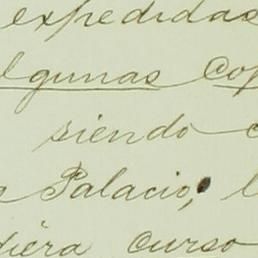 expedidas
lgunas Cop
siendo c
a Palacio; l
diera curso